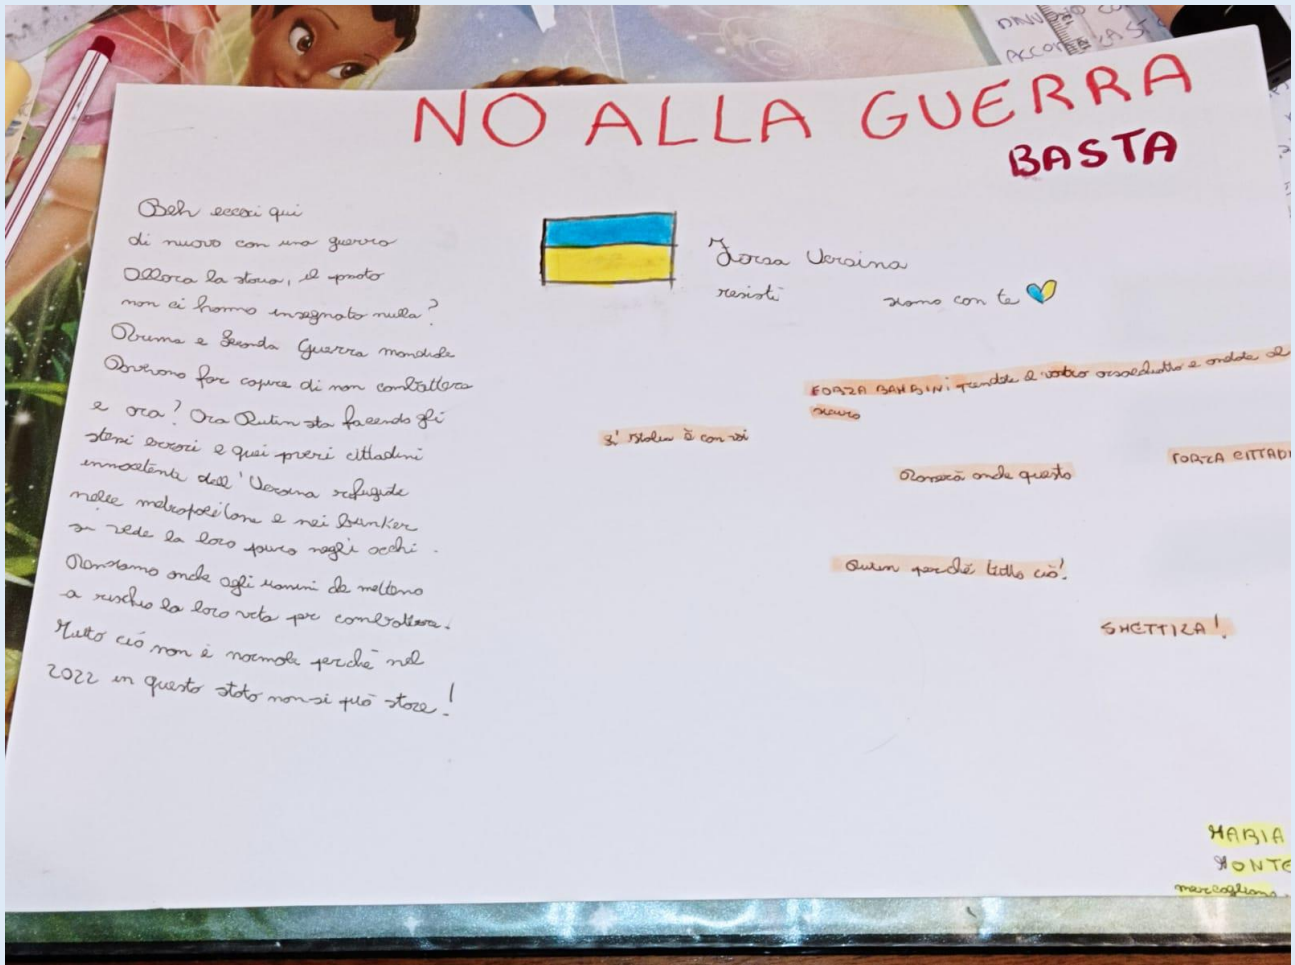 NO ALLA GUERRA
BASTA
Beh eccoci qui
di nuovo con una guerra
Allora la storia, il
non ci hanno insegnato nulla?
Prima e Seconda Guerra mondiale
far capire di non combattere
e ora? Ora Putin sta facendo gli
stessi errori e quei poveri cittadini
dell'Ucraina
nelle metropolitane e nei bunker
si vede la loro paura negli occhi.
Pensiamo anche agli uomini che mettono
a rischio la loro vita per combattere.
Tutto ciò non è normale perché nel
2022 in questo stato non si può stare!
Forza Ucraina
resisti siamo con te
FORZA BAMBINI prendete il vostro orsacchiotto e andate al
sicuro
L'Italia è con voi
Passerà anche questo
FORZA CITTADI
perché tutto ciò!
SMETTILA!
MARIA
MONTE